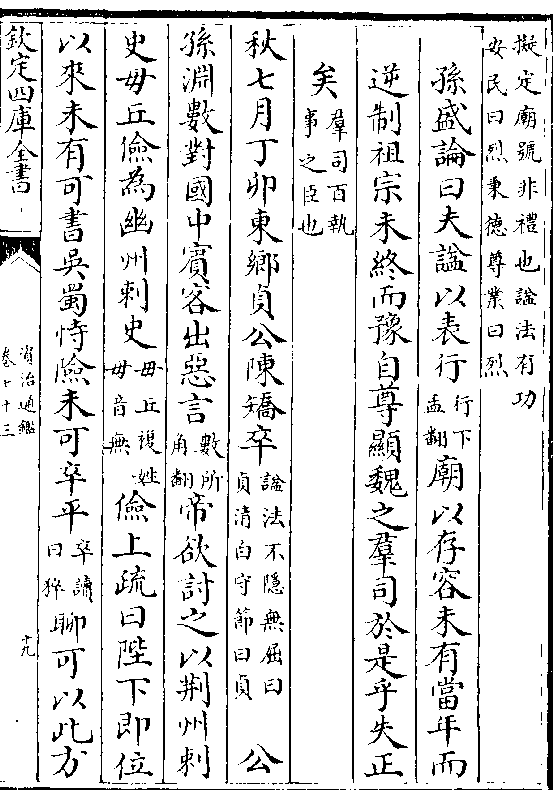 擬定廟號非禮也諡法有功
安民曰烈秉德尊業曰烈
孫盛論曰夫諡以表行行下孟翻廟以存容未有當年而
逆制祖宗未終而豫自尊顯魏之羣司於是乎失正
矣羣司百執事之臣也
秋七月丁卯東鄉貞公陳矯卒諡法不隱無屈曰貞清白守節曰貞 公
孫淵數對國中賓客出惡言數所角翻帝欲討之以荆州刺
史毋丘儉為幽州刺史毋丘複姓毋音無儉上疏曰陛下即位
以來未有可書吳蜀恃險未可卒平卒讀曰猝聊可以此方
欽定四庫全書
資治通鑑
卷七十三
十九